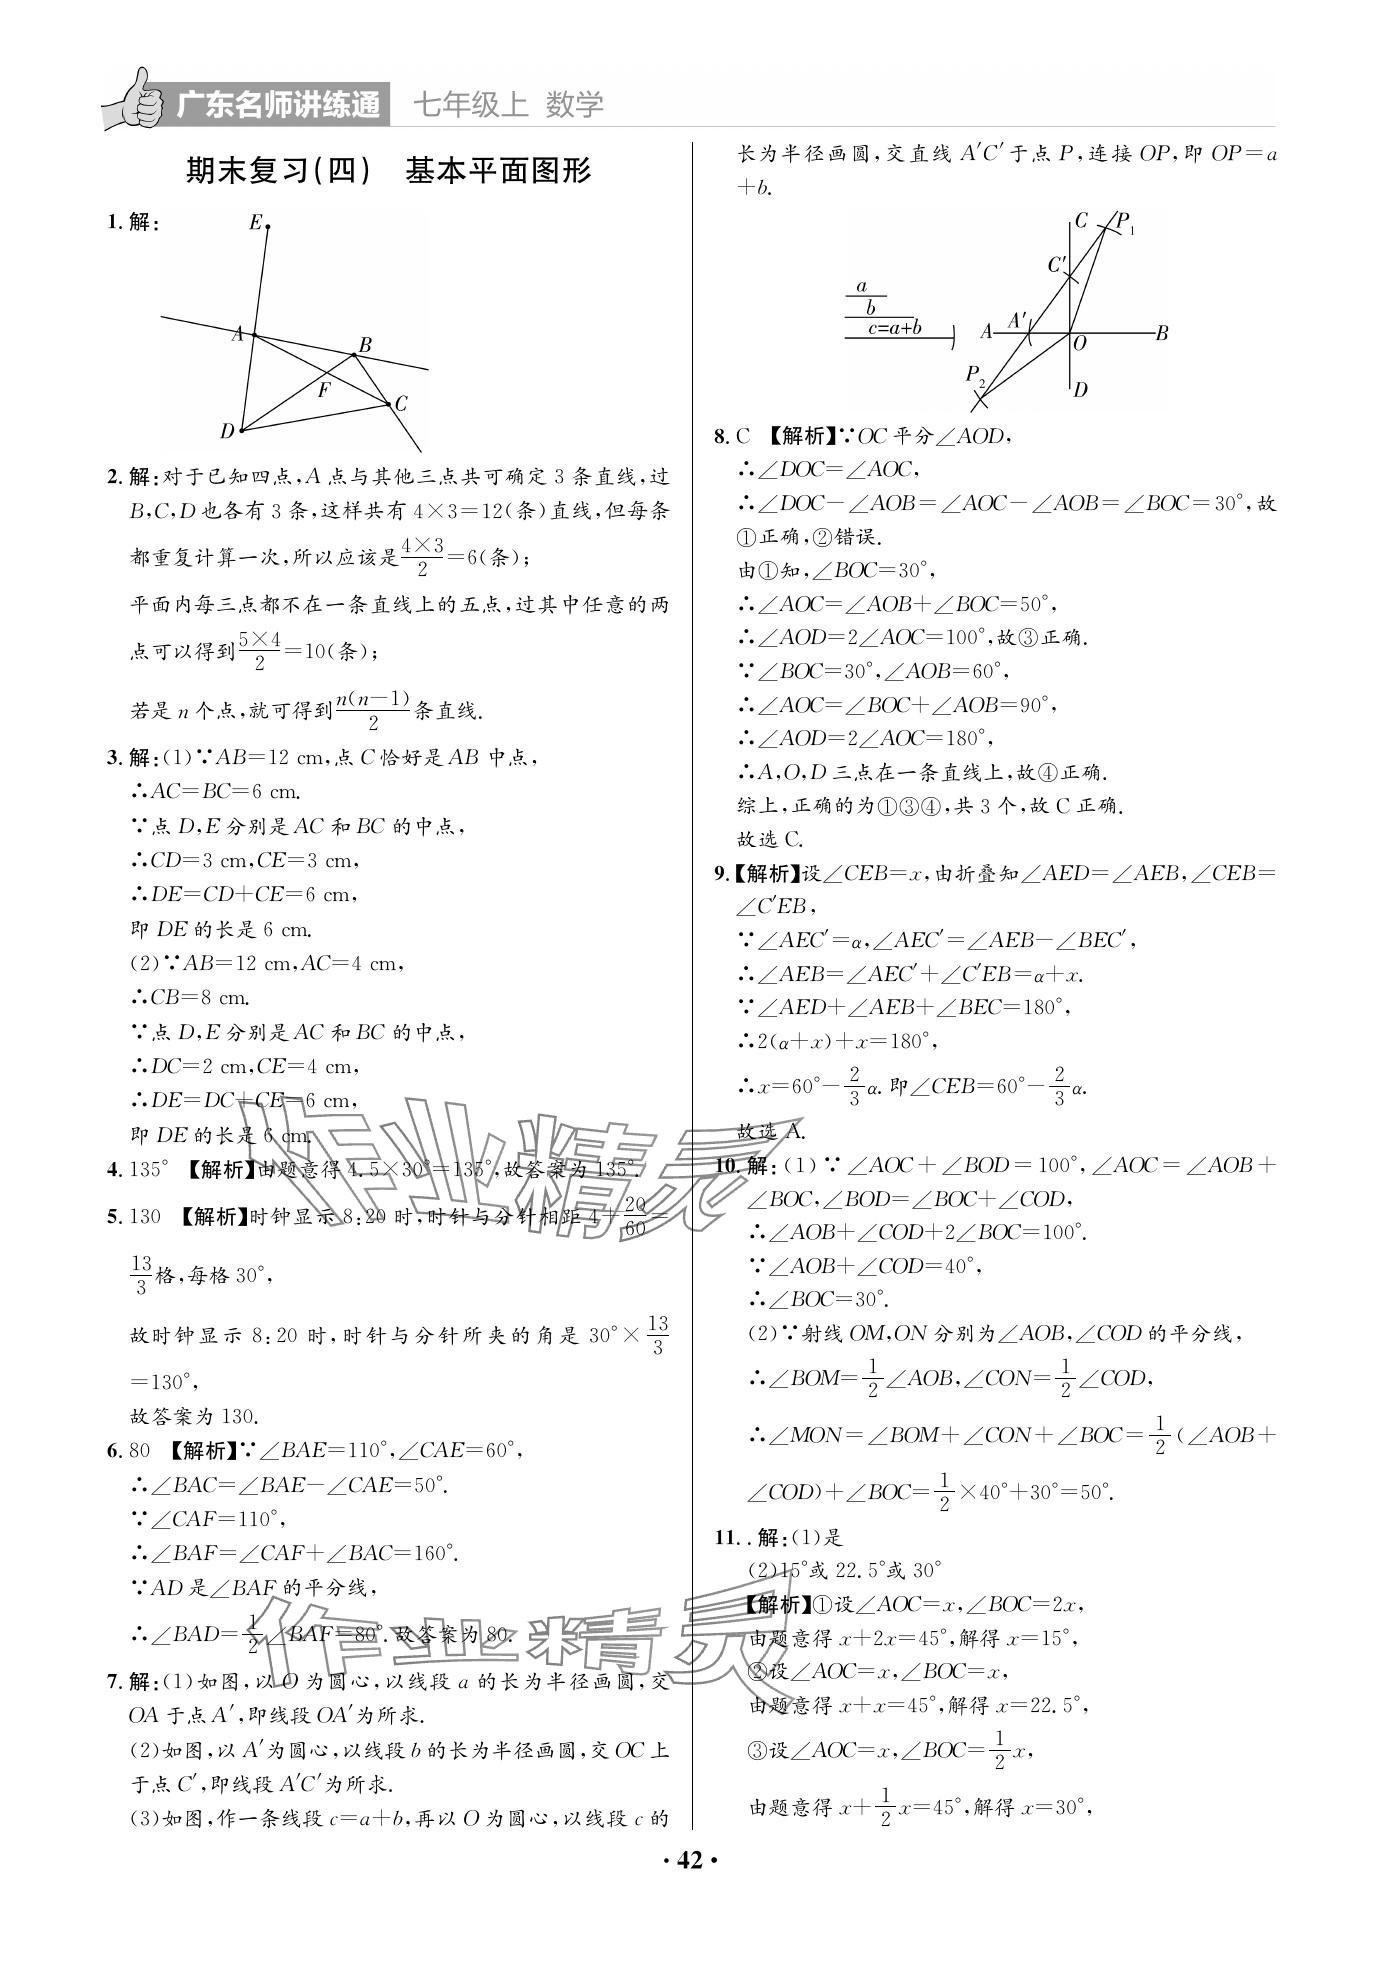 广东名师讲练通 七年级上 数学
期末复习(四) 基本平面图形
1. 解:
E
A
B
F
C
D
2. 解:对于已知四点,A 点与其他三点共可确定 3 条直线,过
B,C,D 也各有 3 条,这样共有 4×3=12(条)直线,但每条
都重复计算一次,所以应该是\frac{4×3}{2}=6(条);
平面内每三点都不在一条直线上的五点,过其中任意的两
点可以得到\frac{5×4}{2}=10(条);
若是 n 个点,就可得到\frac{n(n-1)}{2}条直线.
3. 解:(1)∵AB=12 cm,点 C 恰好是 AB 中点,
∴AC=BC=6 cm.
∵点 D,E 分别是 AC 和 BC 的中点,
∴CD=3 cm,CE=3 cm,
∴DE=CD+CE=6 cm,
即 DE 的长是 6 cm.
(2)∵AB=12 cm,AC=4 cm,
∴CB=8 cm.
∵点 D,E 分别是 AC 和 BC 的中点,
∴DC=2 cm,CE=4 cm,
∴DE=DC+CE=6 cm,
即 DE 的长是 6 cm.
4. 135° 【解析】由题意得 4.5×30°=135°,故答案为 135°.
5. 130 【解析】时钟显示 8:20 时,时针与分针相距 4+\frac{20}{60}=
\frac{13}{3}格,每格 30°,
故时钟显示 8:20 时,时针与分针所夹的角是 30°×\frac{13}{3}
=130°,
故答案为 130.
6. 80 【解析】∵∠BAE=110°,∠CAE=60°,
∴∠BAC=∠BAE-∠CAE=50°.
∵∠CAF=110°,
∴∠BAF=∠CAF+∠BAC=160°.
∵AD 是∠BAF 的平分线,
∴∠BAD=\frac{1}{2}∠BAF=80°.故答案为 80.
7. 解:(1)如图,以 O 为圆心,以线段 a 的长为半径画圆,交
OA 于点 A′,即线段 OA′为所求.
(2)如图,以 A′为圆心,以线段 b 的长为半径画圆,交 OC 上
于点 C′,即线段 A′C′为所求.
(3)如图,作一条线段 c=a+b,再以 O 为圆心,以线段 c 的
长为半径画圆,交直线 A′C′于点 P,连接 OP,即 OP=a
+b.
C P₁
C′
a
b
c=a+b
A A′ O B
P₂
D
8. C 【解析】∵OC 平分∠AOD,
∴∠DOC=∠AOC,
∴∠DOC-∠AOB=∠AOC-∠AOB=∠BOC=30°,故
①正确,②错误.
由①知,∠BOC=30°,
∴∠AOC=∠AOB+∠BOC=50°,
∴∠AOD=2∠AOC=100°,故③正确.
∵∠BOC=30°,∠AOB=60°,
∴∠AOC=∠BOC+∠AOB=90°,
∴∠AOD=2∠AOC=180°,
∴A,O,D 三点在一条直线上,故④正确.
综上,正确的为①③④,共 3 个,故 C 正确.
故选 C.
9.【解析】设∠CEB=x,由折叠知∠AED=∠AEB,∠CEB=
∠C′EB,
∵∠AEC′=α,∠AEC′=∠AEB-∠BEC′,
∴∠AEB=∠AEC′+∠C′EB=α+x.
∵∠AED+∠AEB+∠BEC=180°,
∴2(α+x)+x=180°,
∴x=60°-\frac{2}{3}α.即∠CEB=60°-\frac{2}{3}α.
故选 A.
10. 解:(1)∵∠AOC+∠BOD=100°,∠AOC=∠AOB+
∠BOC,∠BOD=∠BOC+∠COD,
∴∠AOB+∠COD+2∠BOC=100°.
∵∠AOB+∠COD=40°,
∴∠BOC=30°.
(2)∵射线 OM,ON 分别为∠AOB,∠COD 的平分线,
∴∠BOM=\frac{1}{2}∠AOB,∠CON=\frac{1}{2}∠COD,
∴∠MON=∠BOM+∠CON+∠BOC=\frac{1}{2}(∠AOB+
∠COD)+∠BOC=\frac{1}{2}×40°+30°=50°.
11. . 解:(1)是
(2)15°或 22.5°或 30°
【解析】①设∠AOC=x,∠BOC=2x,
由题意得 x+2x=45°,解得 x=15°,
②设∠AOC=x,∠BOC=x,
由题意得 x+x=45°,解得 x=22.5°,
③设∠AOC=x,∠BOC=\frac{1}{2}x,
由题意得 x+\frac{1}{2}x=45°,解得 x=30°,
作业精灵
作业精灵
· 42 ·